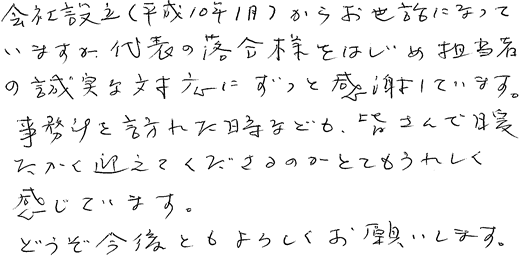 会社設立(平成10年1月)からお世話になって
いますが、代表の落合様をはじめ担当者
の誠実な対応にずっと感謝しています。
事務所を訪れた時なども、皆さんで暖
たかく迎えてくださるのがとてもうれしく
感じています。
どうぞ今後ともよろしくお願いします。